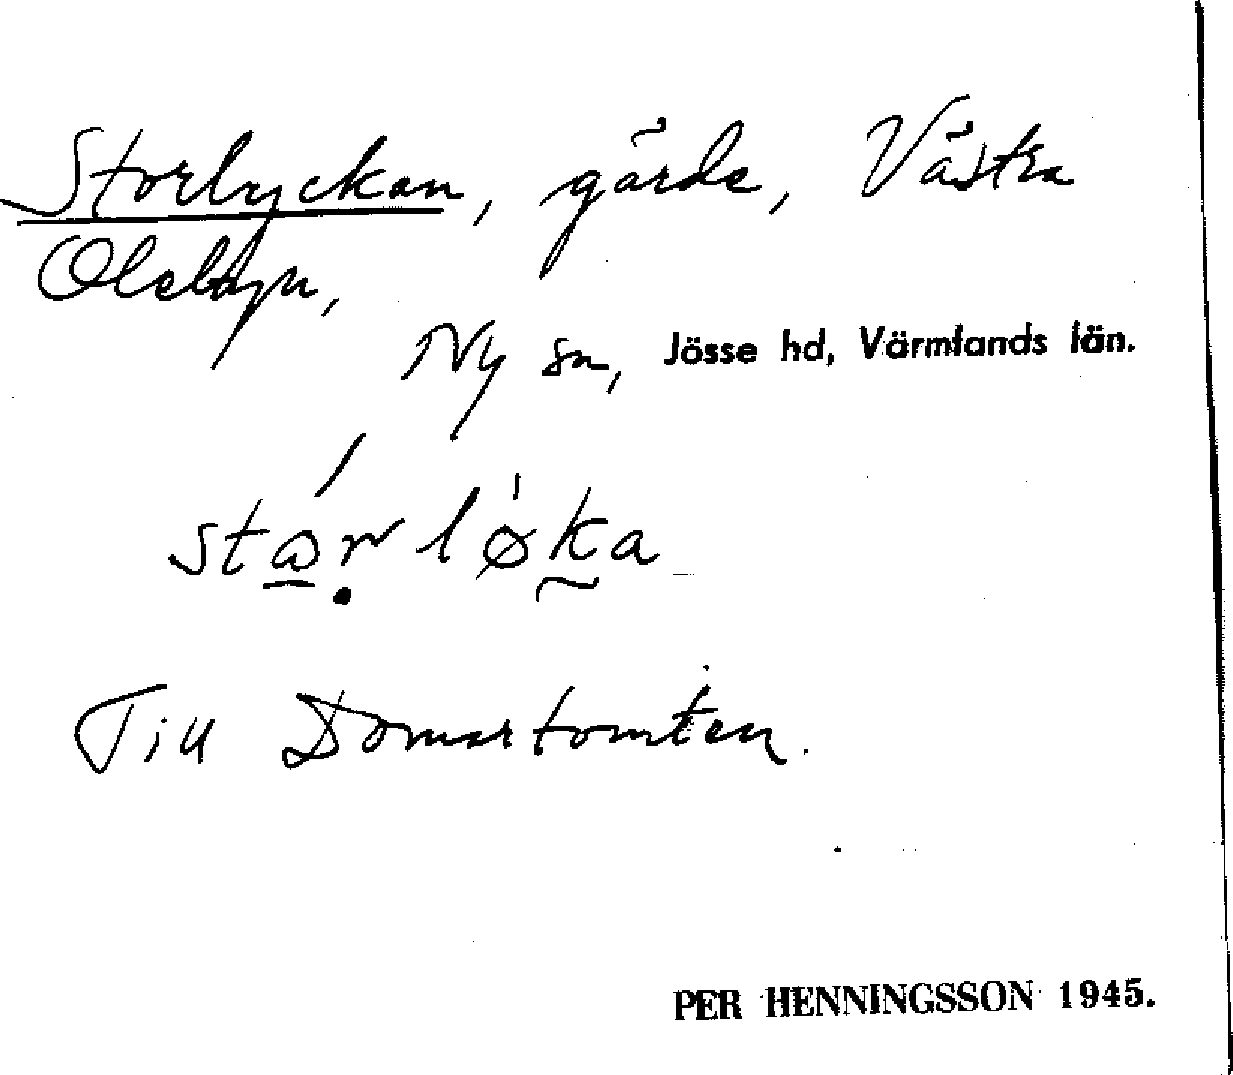 Storlyckan, gärde, Västra
Olsbyn,
Ny sn, Jösse hd, Värmlands län.
Till Domartomten.
PER HENNINGSSON 1945.